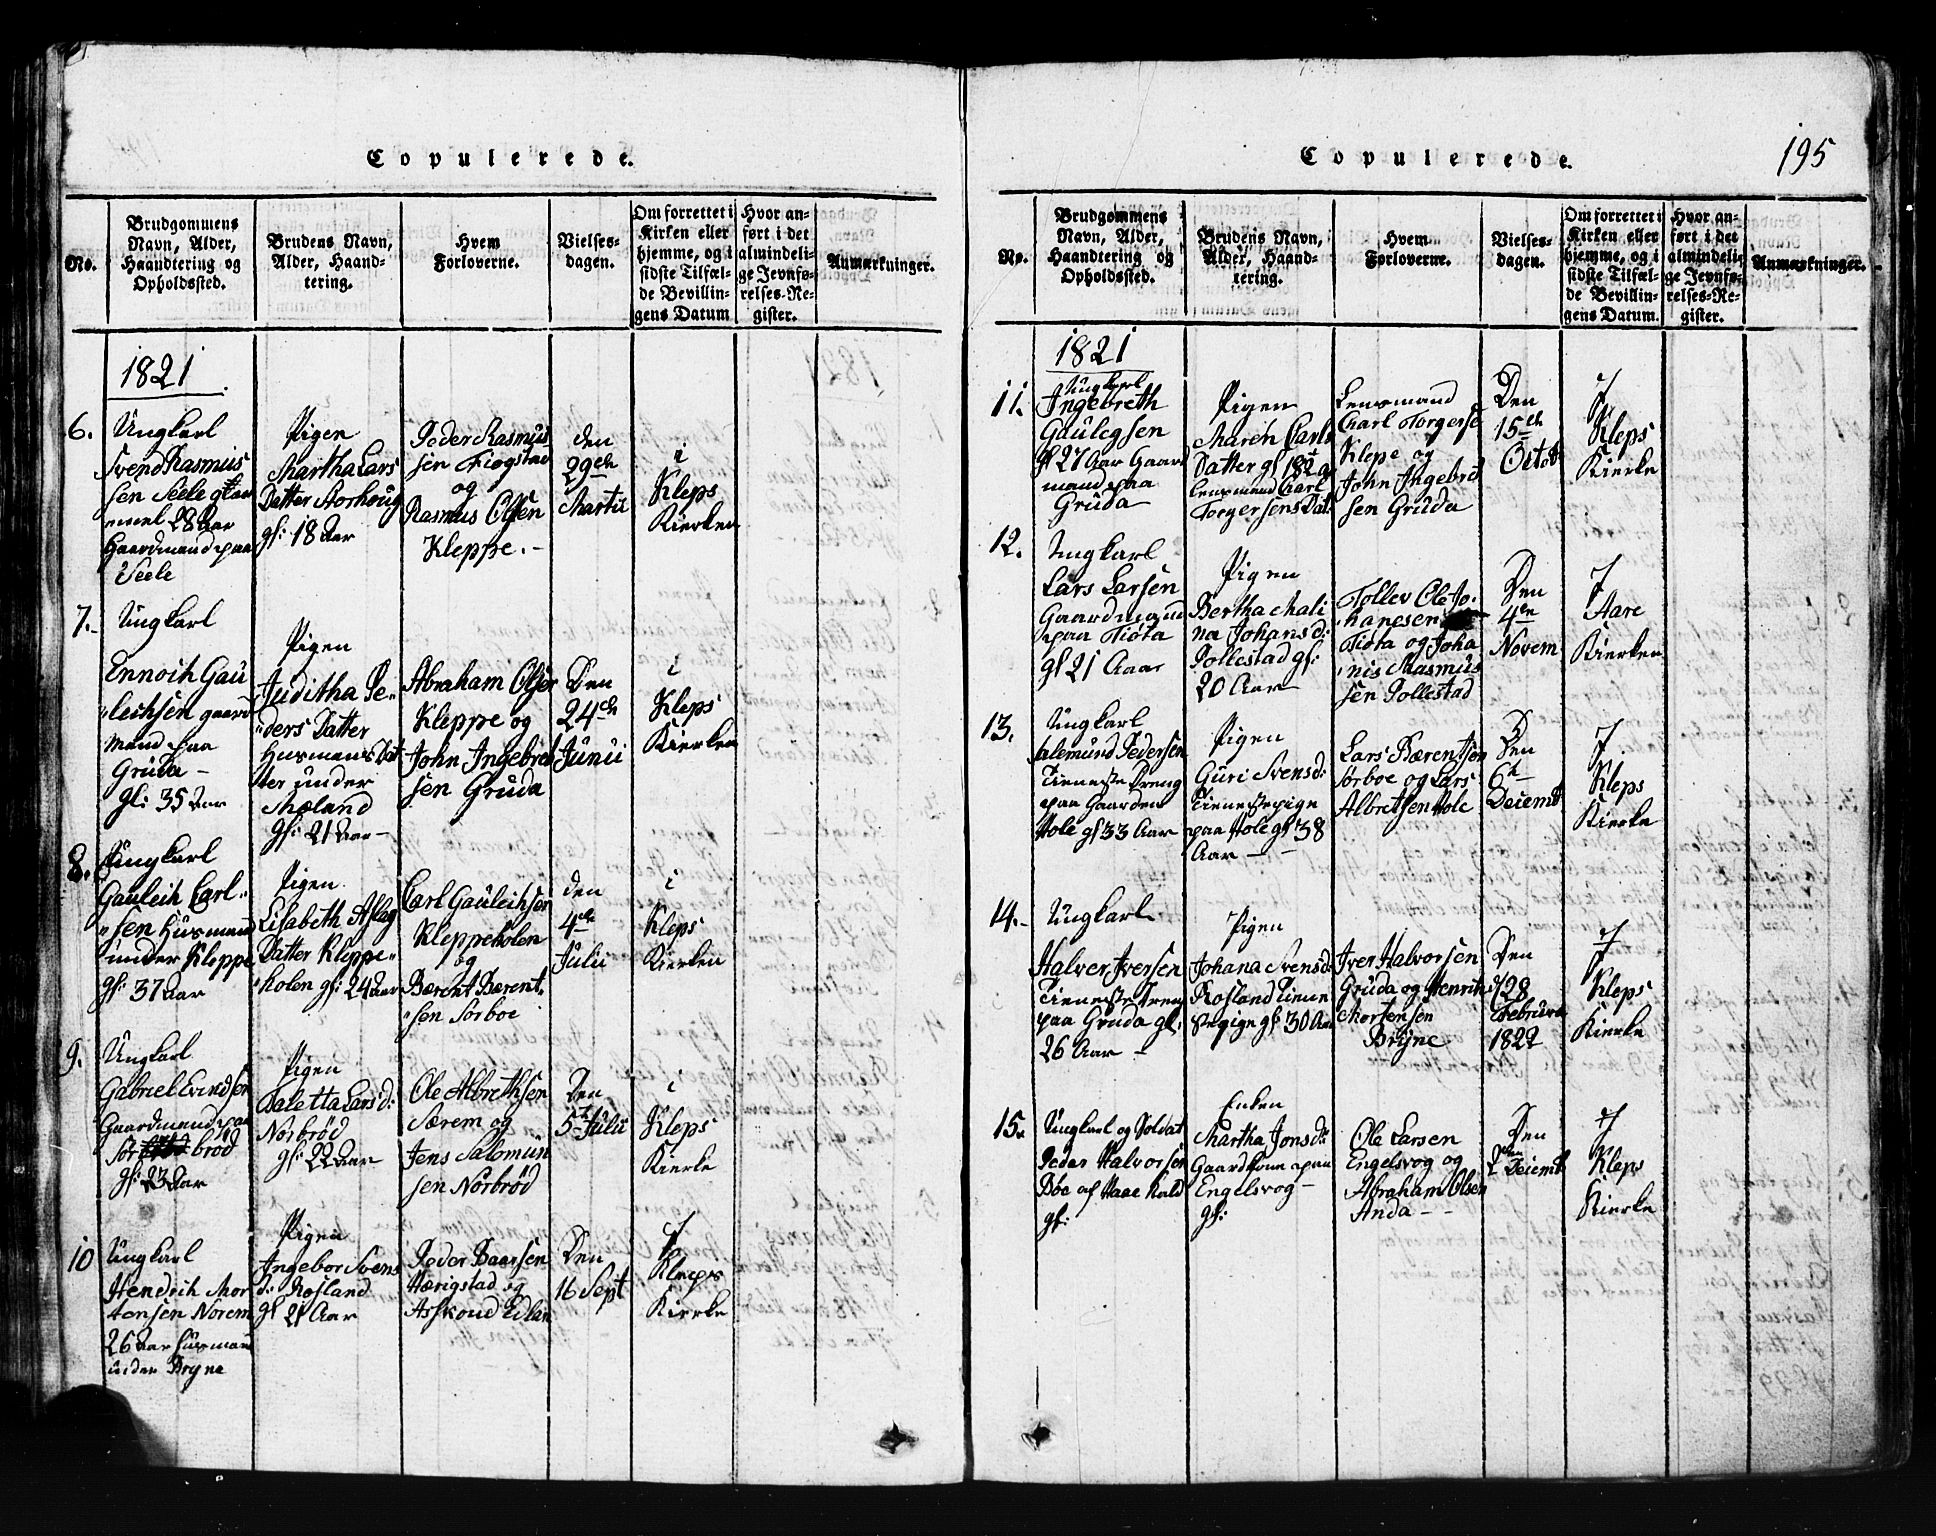 Copulerede.
No.
Brudgommens
Navn, Alder,
Haandtering og
Opholdssted.
Brudens Navn,
Alder, Haand-
tering.
Hvem
Forloverne.
Vielses-
dagen.
Om forrettet i
Kirken eller
hjemme, og i
sidste Tilfæl-
de Bevillin-
gens Datum
Hvor an-
ført i det
almindeli-
ge Jevnfø-
relses-Re-
gister.
Anmærkninger.
1821
6.
Ungkarl
Svend Rasmus
sen Seele
28 Aar
Gaardmand paa
Seele
Pigen
Martha Lars
Datter Storhoug
gl: 18 Aar
Peder Rasmus
sen Fiogstad
og
Rasmus Olsen
Kleppe.-
den
29de
Martii
i
Kleps
Kierken
7.-
Ungkarl
Ennoch Gau
"lechsen gaard
mand paa
Gruda-
gl: 35 Aar
Pigen
Juditha Pe-
"ders Datter
Husmans Dat
ter under
Mæland
gl: 21 Aar-
Abraham Olsen
Kleppe og
John Ingebret
sen Gruda
Den
24de
Junii
i
Kleps
Kierken
8.
Ungkarl
Gauleih Carl-
"sen Husmand
under Kleppe
gl: 37 Aar
Pigen
Lisabeth Aslag
Datter Kleppe-
"holen gl: 24 Aar
Carl Gauleihsen
Kleppeholen
og
Bærent Bærent-
"sen Sørboe
den
4de
Julii
i
Kleps
Kierken
9.
Ungkarl
Gabriel Evindsen
Gaardmand paa
brød
gl: 23 Aar
Pigen
Taletta Larsd:
Norbrød
gl: 22 Aar
Ole Albrethsen
Særem og
Jens Salomun
sen Norbrød
Den
5te Julii
i
Kleps
Kierke
10
Ungkarl
Hendrik Mor
tensen Norem
26 Aar Husmand
under Bryne
Pigen
Ingebor Svens
d: Rosland
gl 21 Aar
Peder Baarsen
Hærigstad og
Den
16 Sept
I
Kleps
Kierke
Copulerede.
195
No.
Brudgommens
Navn, Alder,
Haandtering og
Opholdssted.
Brudens Navn,
Alder, Haand-
tering.
Hvem
Forloverne.
Vielses-
dagen.
Om forrettet i
Kirken eller
hjemme, og i
sidste Tilfæl-
de Bevillin-
gens Datum.
Hvor an-
ført i det
almindeli-
ge Jevnfø-
relses-Re-
gister.
Anmærkninger.
1821
11.
Ungkarl
Ingebreth
Gaulegsen
gl 27 Aar Gaard
mand paa
Gruda
Pigen
Maren Carls
Datter gl 18
Lensmand Carl
Torgersens Dat:
Lensmand
Carl Torgerse
Klepe og
John Ingebret
sen Gruda
Den
15de
Octob
I
Kleps
Kierke
12.
Ungkarl
Lars Larsen
Gaardmand
paa Tiøta
gl 21 Aar
Pigen
Bertha Mali
na Johansd:
Pollestad gl:
20 Aar
Tollev Ole Jo-
"hanesen
Tiøta og Joha
"nis Rasmus
sen Pollestad
Den
4de
Novem
I
Aare
Kierken
13.
Ungkarl
Salemund Pedersen
Tieneste Dreng
paa Gaarden
Hole gl 33 Aar
Pigen
Guri Svensd:
Tienestepige
paa Hole gl 38
Aar -
Lars Bærentsen
Sørboe og Lars
Albretsen Hole
Den
6te
Decemb
I
Kleps
Kierke
14.-
Ungkarl
Halver Iversen
Tieneste Dreng
paa Gruda gl:
26 Aar -
Pigen
Johana Svensd:
Rosland Tiene
stepige gl 30 Aar
Iver Halvorsen
Gruda og Henrik
Mortensen
Bryne
Den
28
Februar
1822
I
Kleps
Kierke
15.
Ungkarl og Soldat
Peder Halvorsen
Bøe af Haae Kald
gl:
Enken
Martha Jonsd:
Gaardkone paa
Engelsvog -
gl:
Ole Larsen
Engelsvog og
Abraham Olsen
Anda - -
Den
Decemb
I
Kleps
Kierke